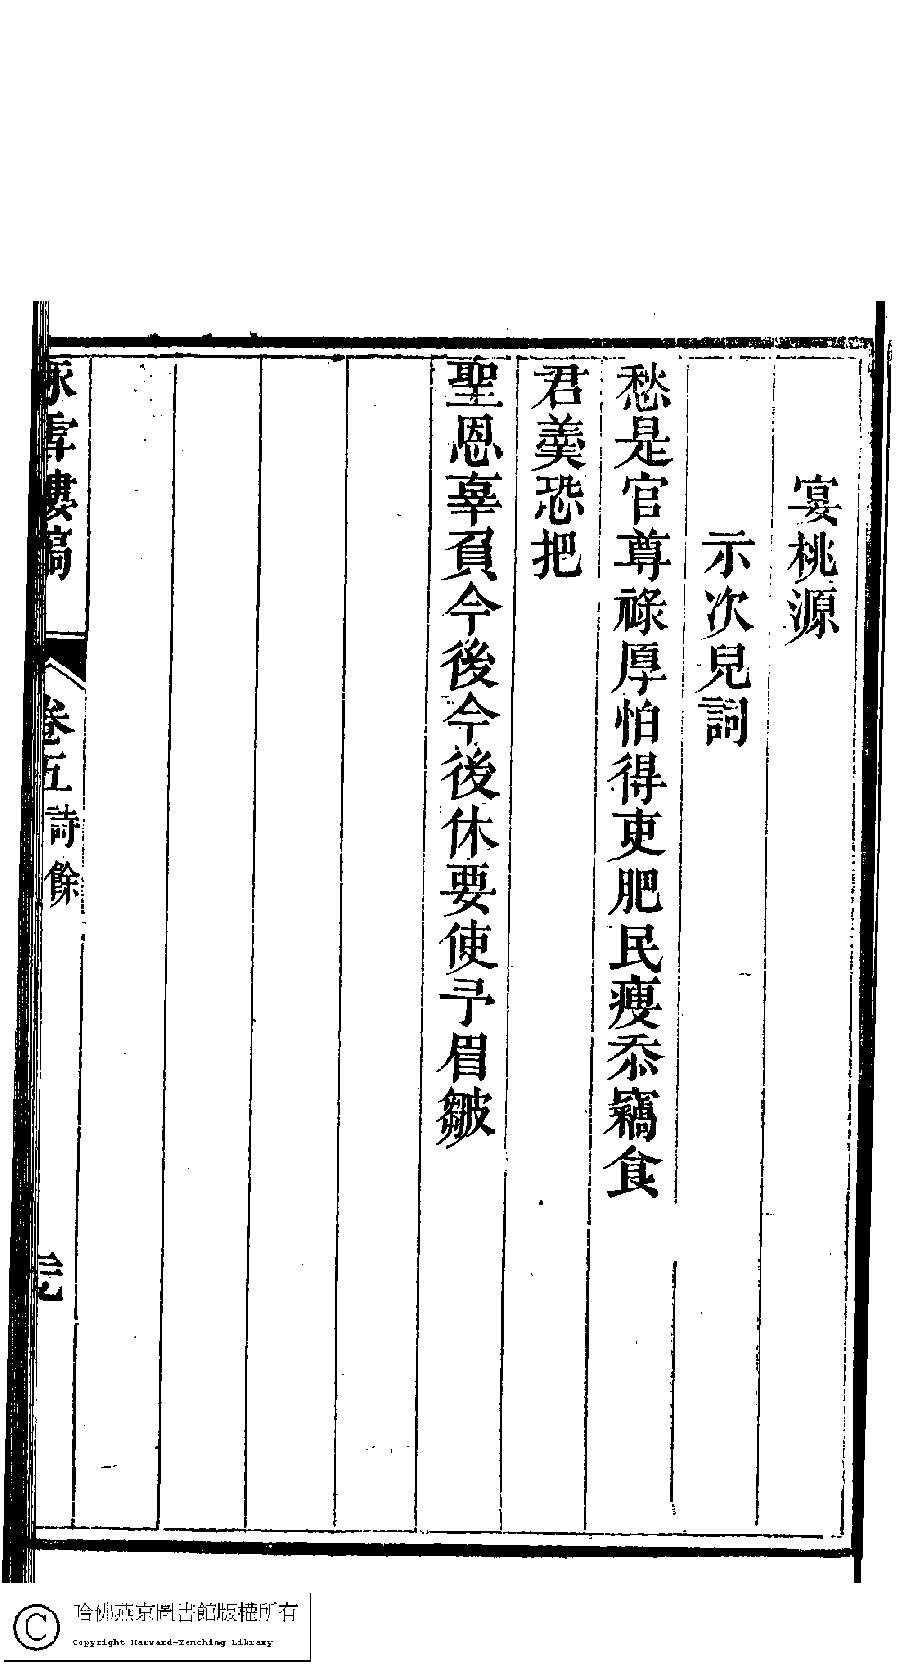 宴桃源
示次兒詞
愁是官尊祿厚怕得吏肥民瘦忝竊食
君羹恐把
聖恩辜負今後今後休要使予眉皺
卷五 詩餘
哈佛燕京圖書館版權所有
Copyright Harvard-Yenching Library